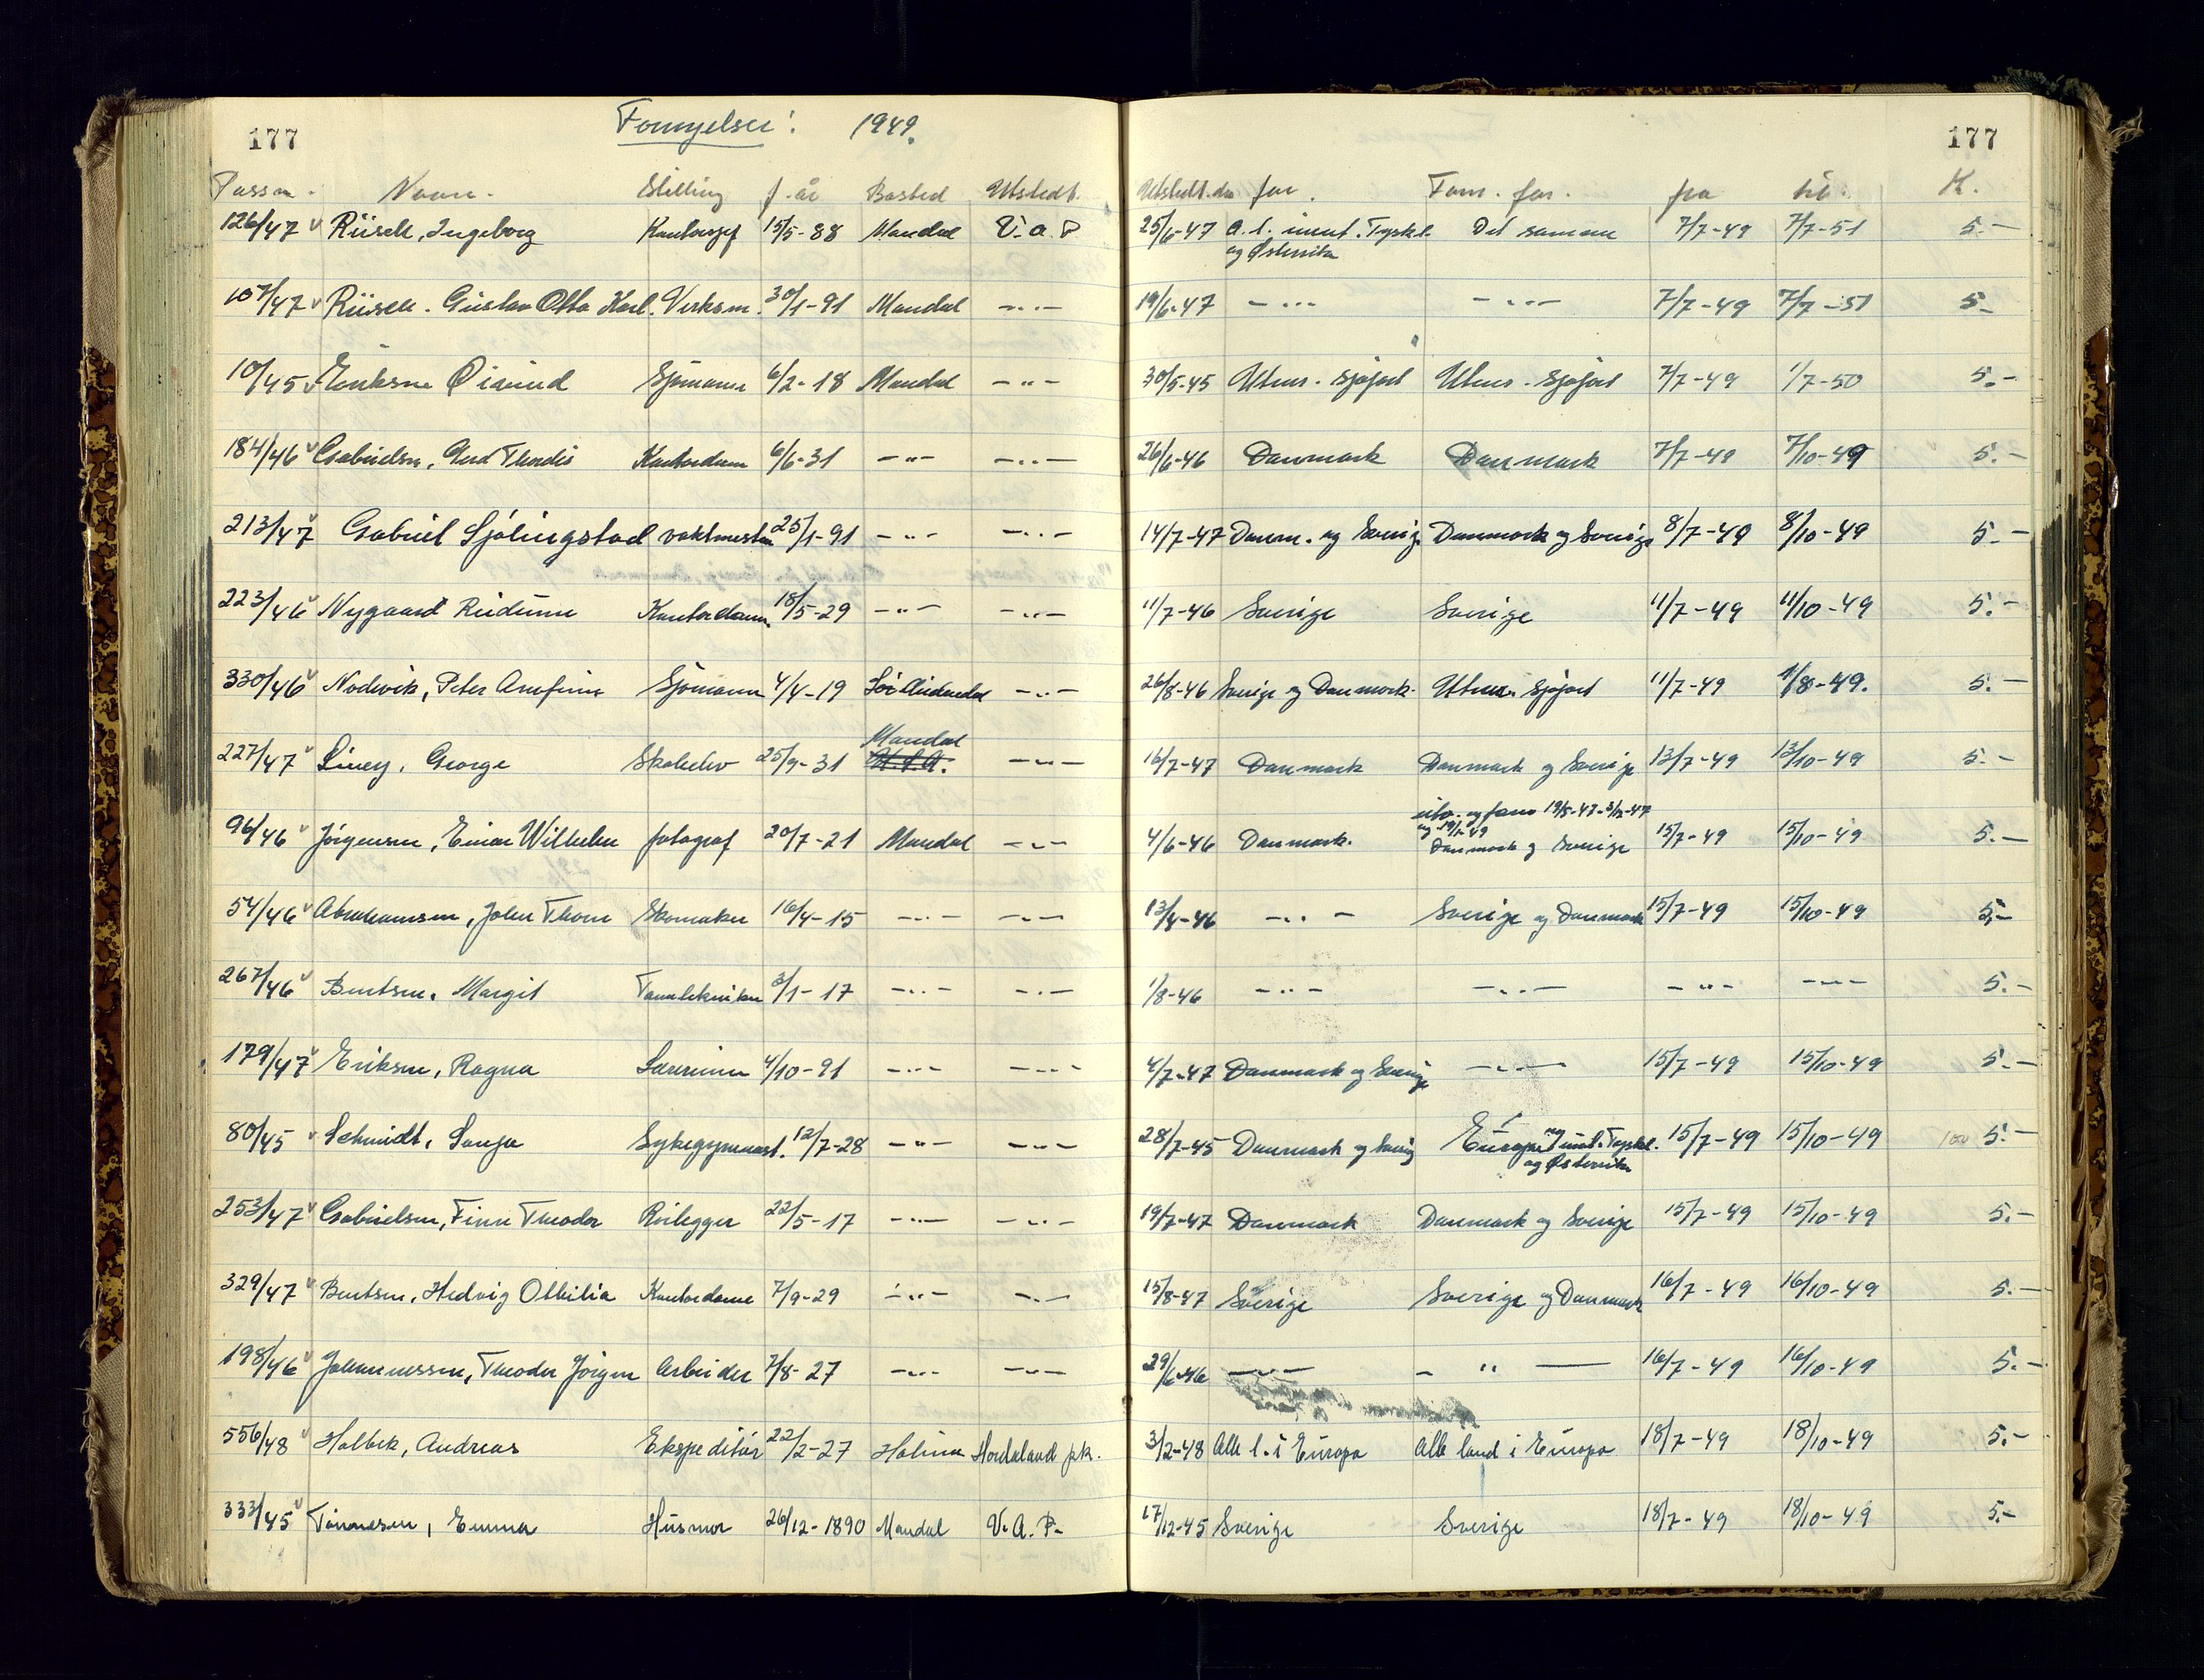 177 Fornyelser: 1949. 177
Passnr. Navn. Stilling f. år Bosted Utstedt. Utstedt. da for. Forn. for. fra til. K.
126/47 Riisell, Ingeborg Kontorsjef 15/5-88 Mandal V.a.P 25/6-47 a.l. unnt. Tyskl. Det samme 7/7-49 7/7-51 5.-
og Østerrike
107/47 Riisell. Gustav Otto Karl. Verksm. 30/1-91 Mandal -"- 19/6-47 -"- -"- 7/7-49 7/7-51 5-
10/45 Eriksen Øivind Sjømann 6/2-18 Mandal -"- 30/5-45 Utenr. sjøfart Utenr. sjøfart 7/7-49 1/7-50 5.-
184/46 Gabrielsen, Gerd Thordis Kontordame 6/6-31 -"- -"- 26/6-46 Danmark Danmark 7/7-49 7/10-49 5.-
213/47 Gabriel Sjølingstad vaktmester 25/1-91 -"- -"- 14/7-47 Danm. og Sverige Danmark og Sverige 8/7-49 8/10-49 5.-
223/46 Nygaard Reidunn Kontordame. 18/5-29 -"- -"- 11/7-46 Sverige Sverige 11/7-49 11/10-49 5.-
330/46 Nodevik, Peter Arnfinn Sjømann 4/4-19 Sør Audnedal -"- 26/8-46 Sverige og Danmark. Utenr. sjøfart 11/7-49 11/8-49. 5.-
Mandal
227/47 Liney, George Skoleelev 25/9-31 U.S.A. -"- 16/7-47 Danmark Danmark og Sverige 13/7-49 13/10-49 5.-
utv. og forn 19/5-47-3/12-47
og 19/1-49
96/46 Jørgensen, Einar Wilhelm fotograf 20/7-21 Mandal -"- 4/6-46 Danmark. Danmark og Sverige 15/7-49 15/10-49 5.-
54/46 Abrahamsen, John Thom Skomaker 16/4-15 -"- -"- 13/4-46 -"- Sverige og Danmark 15/7-49 15/10-49 5-
267/46 Bentsen. Margit Tanntekniker 3/1-17 -"- -"- 1/8-46 -"- -"- -"- -"- 5.-
179/47 Eriksen, Ragna Lærerinne 4/10-91 -"- -"- 4/7-47 Danmark og Sverige -"- 15/7-49 15/10-49 5.-
80/45 Schmidt, Sonja Sykegymnast. 12/7-28 -"- -"- 28/7-45 Danmark og Sverig Europa unnt. Tyskl. 15/7-49 15/10-49 5.-
og Østerrike
253/47 Gabrielsen, Finn Theodor Rørlegger 22/5-17 -"- -"- 19/7-47 Danmark Danmark og Sverige 15/7-49 15/10-49 5.-
329/47 Bentsen, Hedvig Othilia Kontordame 7/9-29 -"- -"- 15/8-47 Sverige Sverige og Danmark 16/7-49 16/10-49 5.-
198/46 Johannessen, Theodor Jørgen Arbeider 7/8-27 -"- -"- 29/6-46 -"- -"- 16/7-49 16/10-49 5.-
556/48 Holbek, Andreas Ekspeditør 22/2-27 Holum Hordaland pk. 3/2-48 Alle l. i Europa Alle land i Europa 18/7-49 18/10-49 5.-
333/45 Tønnesen, Emma Husmor 26/12-1890 Mandal V.A.P. 17/12-45 Sverige Sverige 18/7-49 18/10-49 5.-